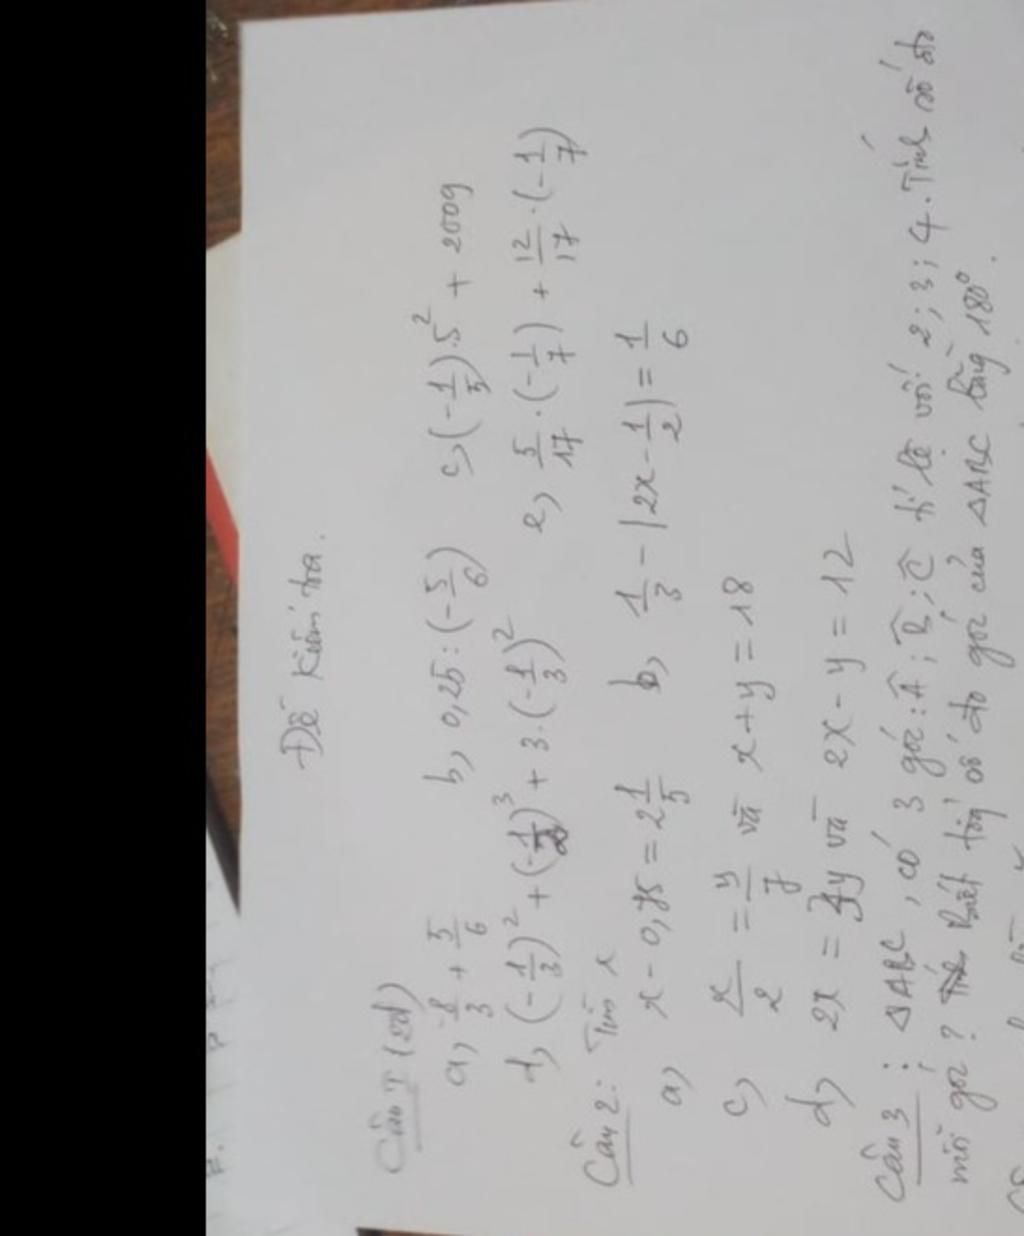 Đề kiểm tra.
Câu I (2đ)
a, 2/3 + 5/6 b, 0,25 : (-5/6) c, (-1/5).5² + 2009
d, (-1/3)² + (-1/3)³ + 3.(-1/3)² e, 5/17 . (-1/7) + 12/17 . (-1/7)
Câu 2: Tìm x
a) x - 0,75 = 2 1/5 b, 1/3 - |2x - 1/2| = 1/6
c) x/2 = y/7 và x + y = 18
d, 2x = 3y và 2x - y = 12
Câu 3 : ΔABC, có 3 góc: Â; B̂; Ĉ tỉ lệ với 2; 3; 4. Tính số đo
mỗi góc? Biết tổng số đo góc của ΔABC bằng 180°.